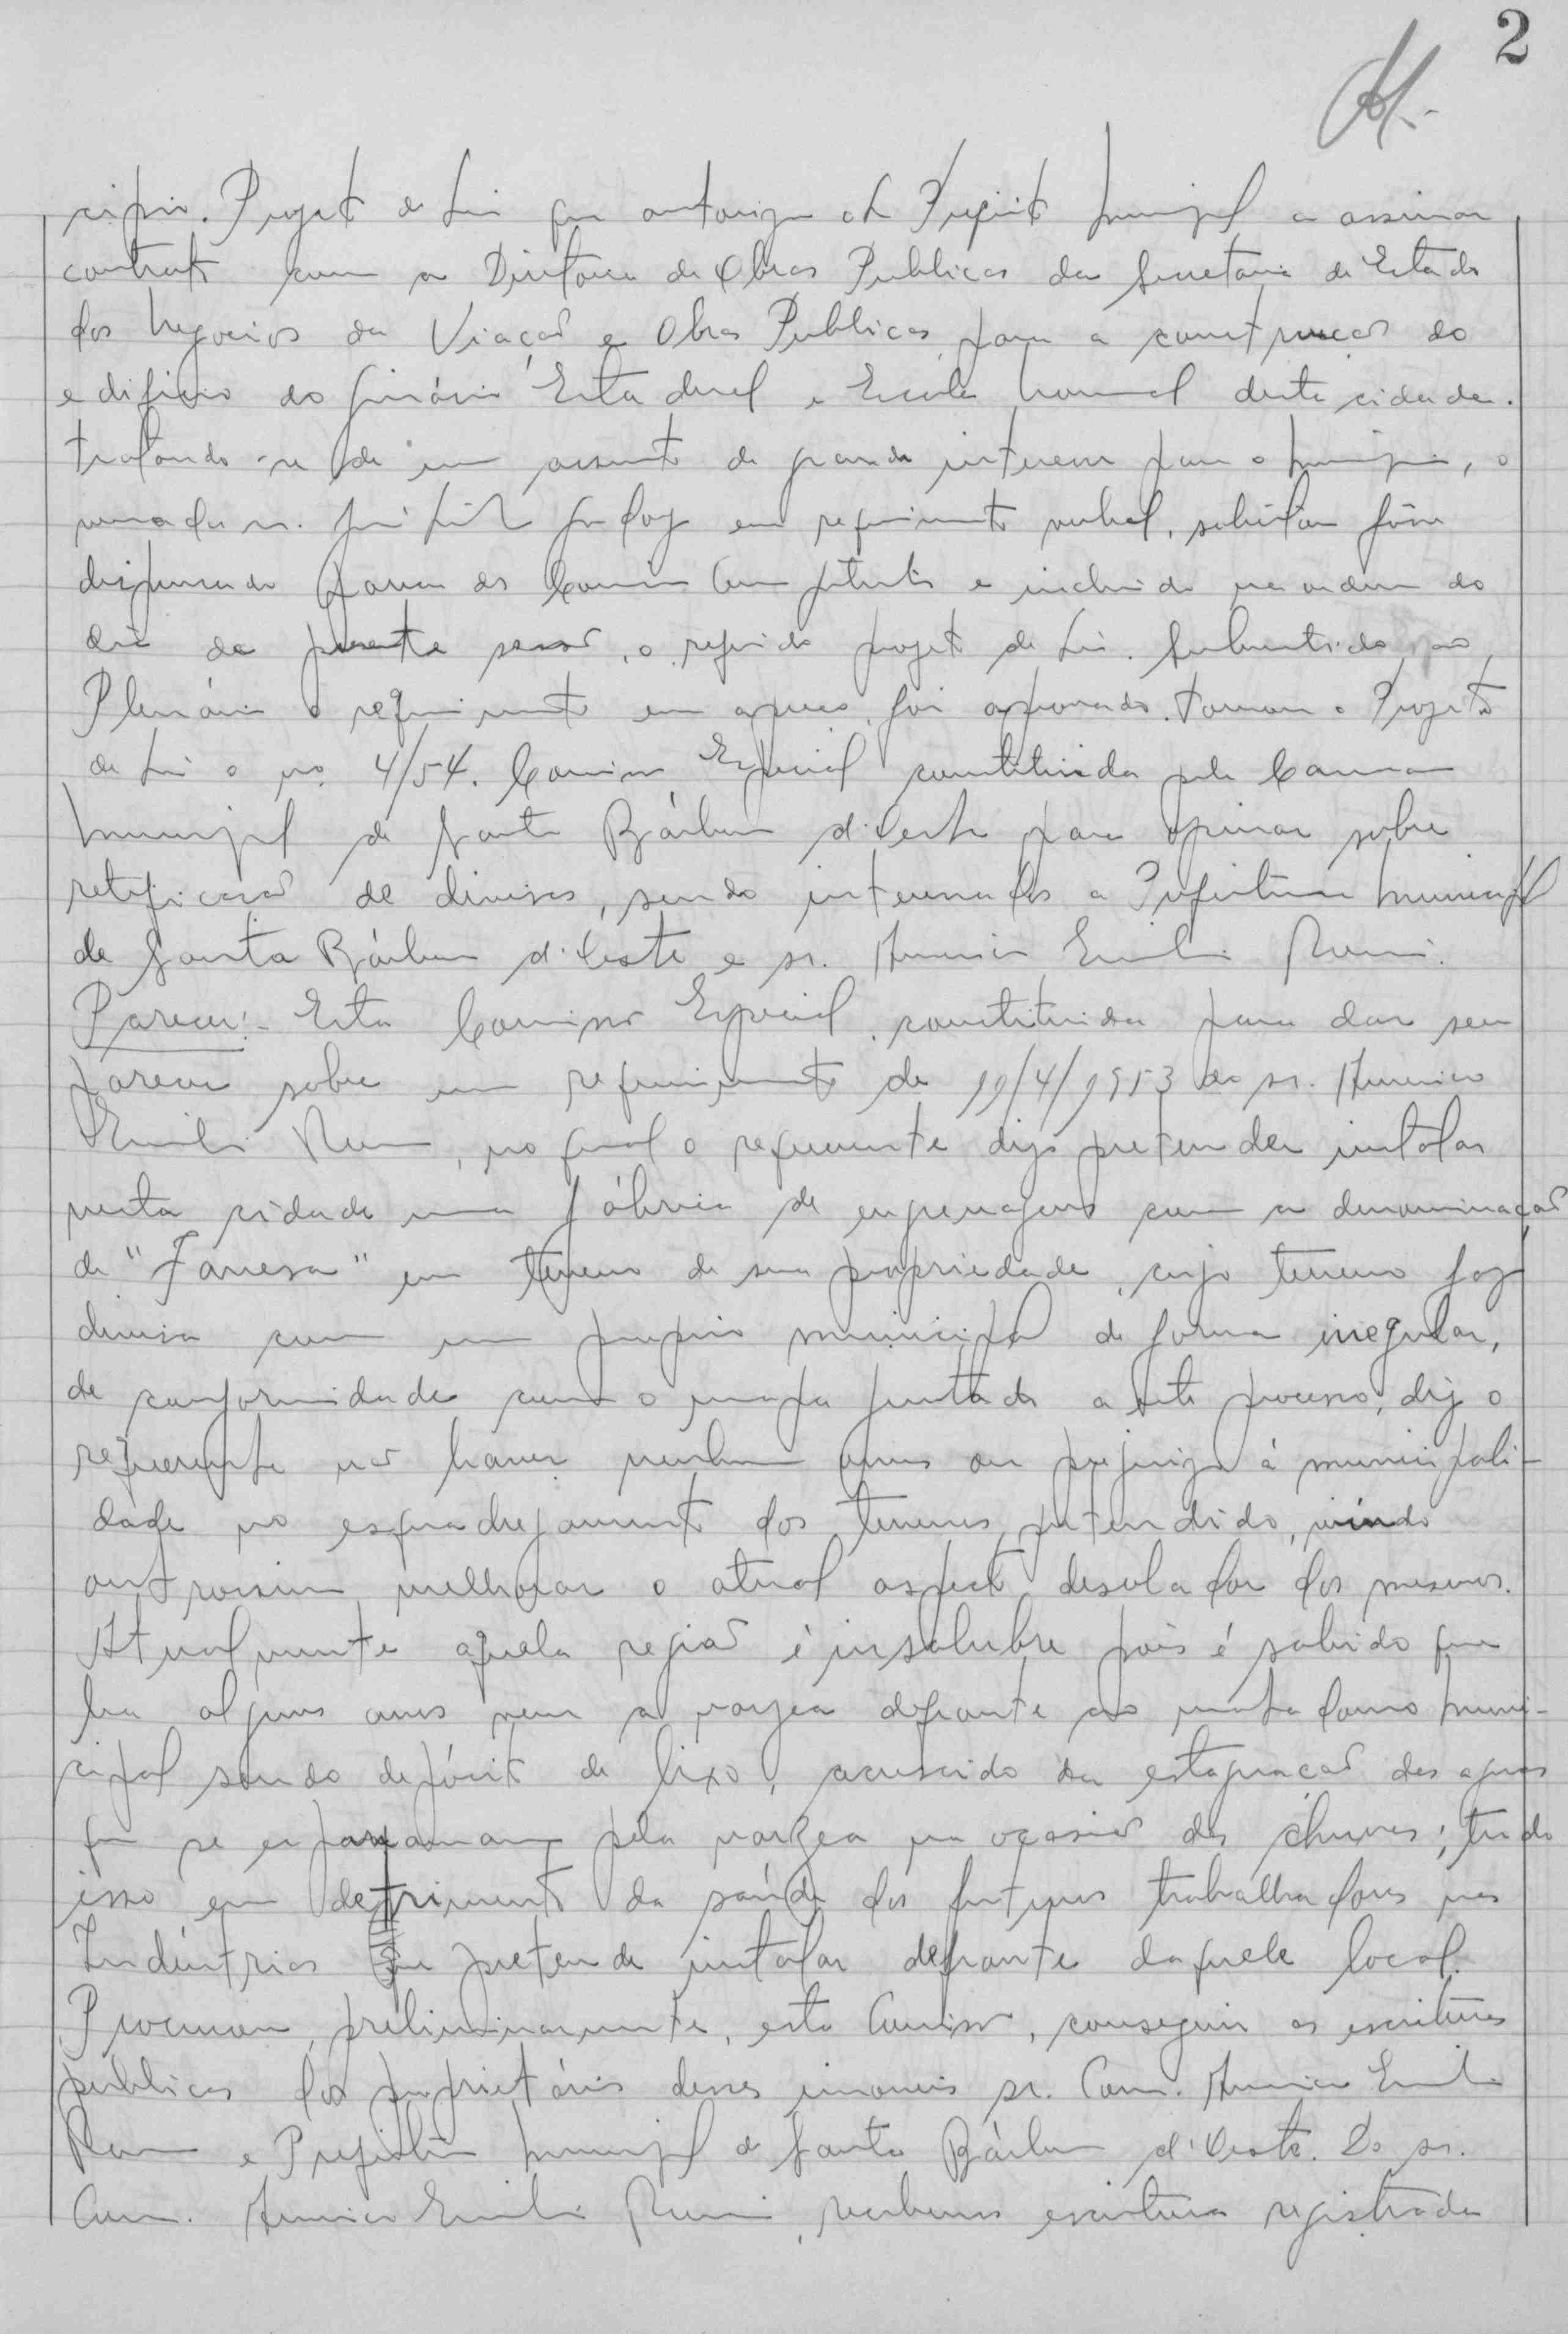 2
cipio. Projeto de Lei que autoriza o Sr. Prefeito Municipal a assinar
contrato com a Diretoria de Obras Publicas da Secretaria de Estado
dos Negocios da Viação e Obras Publicas, para a construção do
edificio do Ginásio Estadual e Escola Normal desta cidade.
tratando-se de um assunto de grande interesse para o municipio, o
vereador sr. José Luiz Godoy em requerimento verbal, solicitou fôsse
dispensado parecer das Comissões Competentes e incluido na ordem do
dia da presente sessão, o referido projeto de Lei. Submetido ao
Plenário o requerimento em apreço, foi aprovado. Tomou o Projeto
de Lei o no. 4/54. Comissão Especial constituida pela Camara
Municipal de Santa Bárbara d'Oeste para opinar sobre
retificação de divisas, sendo interessados a Prefeitura Municipal
de Santa Bárbara d'Oeste e sr. Americo Emilio Romi.
Parecer:- Esta Comissão Especial, constituida para dar seu
parecer sobre um requerimento de 19/4/1953 do sr. Americo
Emilio Romi, no qual o requerente diz pretender instalar
nesta cidade uma fábrica de engrenagens com a denominação
de "Fanesa" em terreno de sua propriedade, cujo terreno faz
divisa com um proprio municipal de forma irregular,
de conformidade com o mapa juntado a este processo, diz o
requerente não haver nenhum onus ou prejuizo á municipali-
dade no esquadrejamento dos terrenos pretendido, vindo
outrossim melhorar o atual aspecto desolador dos mesmos.
Atualmente aquela região é insalubre pois é sabido que
ha alguns anos vem a varzea defronte ao matadouro Muni-
cipal sendo depósito de lixo, acrescido da estagnação das aguas
que se esparramam pela varzea na ocasião das chuvas; tudo
isso em detrimento da saúde dos futuros trabalhadores nas
Indústrias que pretende instalar defronte daquele local.
Procurou, preliminarmente, esta Comissão, conseguir as escrituras
públicas dos proprietários desses imoveis sr. Com. Americo Emilio
Romi e Prefeitura Municipal de Santa Bárbara d'Oeste. Do sr.
Com. Americo Emilio Romi, recebemos escritura registrada